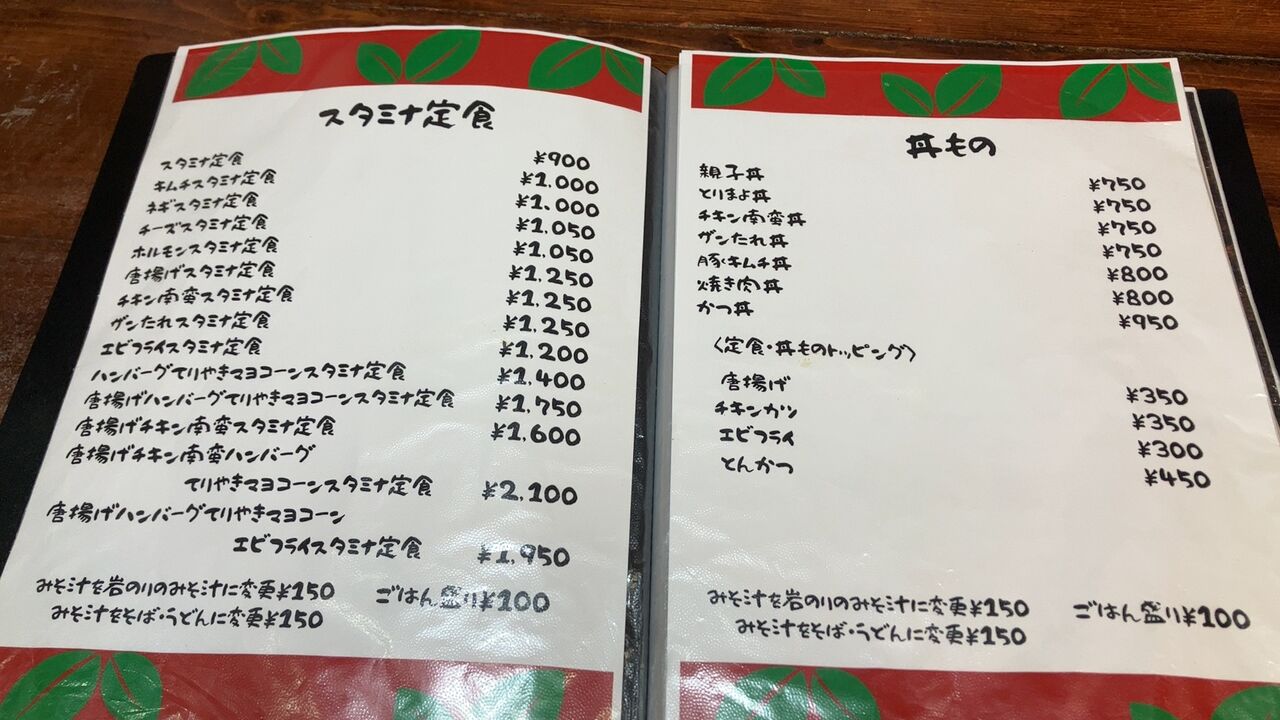 スタミナ定食
スタミナ定食 ¥900
キムチスタミナ定食 ¥1,000
ネギスタミナ定食 ¥1,000
チーズスタミナ定食 ¥1,050
ホルモンスタミナ定食 ¥1,050
唐揚げスタミナ定食 ¥1,250
チキン南蛮スタミナ定食 ¥1,250
ザンたれスタミナ定食 ¥1,250
エビフライスタミナ定食 ¥1,200
ハンバーグてりやきマヨコーンスタミナ定食 ¥1,400
唐揚げハンバーグてりやきマヨコーンスタミナ定食 ¥1,750
唐揚げチキン南蛮スタミナ定食 ¥1,600
唐揚げチキン南蛮ハンバーグ
てりやきマヨコーンスタミナ定食 ¥2,100
唐揚げハンバーグてりやきマヨコーン
エビフライスタミナ定食 ¥1,950
みそ汁を岩のりのみそ汁に変更¥150 ごはん盛り¥100
みそ汁をそば・うどんに変更¥150
丼もの
親子丼 ¥750
とりまよ丼 ¥750
チキン南蛮丼 ¥750
ザンたれ丼 ¥750
豚キムチ丼 ¥800
焼き肉丼 ¥800
かつ丼 ¥950
〈定食・丼ものトッピング〉
唐揚げ ¥350
チキンカツ ¥350
エビフライ ¥300
とんかつ ¥450
みそ汁を岩のりのみそ汁に変更¥150 ごはん盛り¥100
みそ汁をそば・うどんに変更¥150